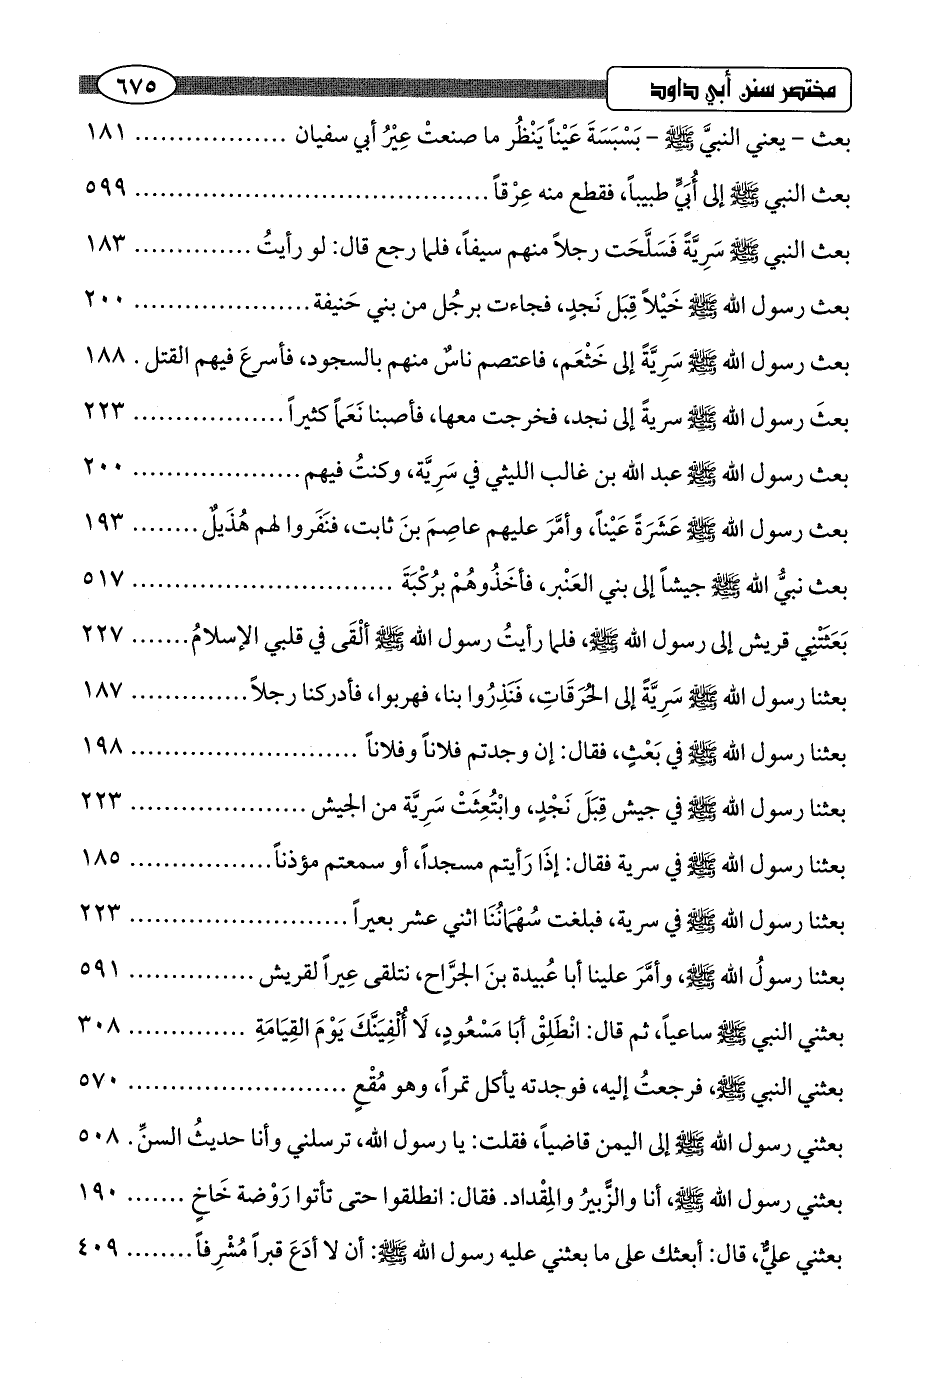 مختصر سنن أبي داود ٦٧٥
بعث - يعني النبيَّ ﷺ - بَسْبَسَةَ عَيْناً يَنْظُر ما صنعتْ عِيْرُ أبي سفيان .................. ١٨١
بعث النبي ﷺ إلى أُبَيٍّ طبيباً، فقطع منه عِرْقاً .......................................... ٥٩٩
بعث النبي ﷺ سَرِيَّةً فَسَلَّحَت رجلاً منهم سيفاً، فلما رجع قال: لو رأيتُ .............. ١٨٣
بعث رسول الله ﷺ خَيْلاً قِبَل نَجدٍ، فجاءت برجُل من بني حَنيفة ..................... ٢٠٠
بعث رسول الله ﷺ سَرِيَّةً إلى خَثْعَم، فاعتصم ناسٌ منهم بالسجود، فأسرعَ فيهم القتل . ١٨٨
بعثَ رسول الله ﷺ سريةً إلى نجد، فخرجت معها، فأصبنا نَعَماً كثيراً .................. ٢٢٣
بعث رسول الله ﷺ عبد الله بن غالب الليثي في سَرِيَّة، وكنتُ فيهم .................... ٢٠٠
بعث رسول الله ﷺ عَشَرَةً عَيْناً، وأمَّرَ عليهم عاصِمَ بنَ ثابت، فنَفَروا لهم هُذَيلٌ ........ ١٩٣
بعث نبيُّ الله ﷺ جيشاً إلى بني العَنْبر، فأخَذُوهُمْ برُكْبَةَ ............................... ٥١٧
بَعَثَتْنِي قريش إلى رسول الله ﷺ، فلما رأيتُ رسول الله ﷺ ألْقَى في قلبي الإسلامُ ....... ٢٢٧
بعثنا رسول الله ﷺ سَرِيَّةً إلى الحُرَقَاتِ، فَنَذِرُوا بنا، فهربوا، فأدركنا رجلاً .............. ١٨٧
بعثنا رسول الله ﷺ في بَعْثٍ، فقال: إن وجدتم فلاناً وفلاناً ........................... ١٩٨
بعثنا رسول الله ﷺ في جيش قِبَلَ نَجْدٍ، وانْبُعِثَتْ سَرِيَّة من الجيش ..................... ٢٢٣
بعثنا رسول الله ﷺ في سرية فقال: إذَا رَأيتم مسجداً، أو سمعتم مؤذناً ................. ١٨٥
بعثنا رسول الله ﷺ في سرية، فبلغت سُهْمَانُنَا اثني عشر بعيراً .......................... ٢٢٣
بعثنا رسولُ الله ﷺ، وأمَّرَ علينا أبا عُبيدة بنَ الجَرَّاح، نتلقى عِيراً لقريش ............... ٥٩١
بعثني النبي ﷺ ساعياً، ثم قال: انْطَلِقْ أبَا مَسْعُودٍ، لَا أُلْفِيَنَّكَ يَوْمَ القِيَامَةِ .............. ٣٠٨
بعثني النبي ﷺ، فرجعتُ إليه، فوجدته يأكل تمراً، وهو مُقْعٍ .......................... ٥٧٠
بعثني رسول الله ﷺ إلى اليمن قاضياً، فقلت: يا رسول الله، ترسلني وأنا حديثُ السنِّ . ٥٠٨
بعثني رسول الله ﷺ، أنا والزَّبيرُ والمِقْداد. فقال: انطلقوا حتى تأتوا رَوْضة خَاخٍ ....... ١٩٠
بعثني عليٌّ، قال: أبعثك على ما بعثني عليه رسول الله ﷺ: أن لا أدَعَ قبراً مُشْرِفاً ........ ٤٠٩